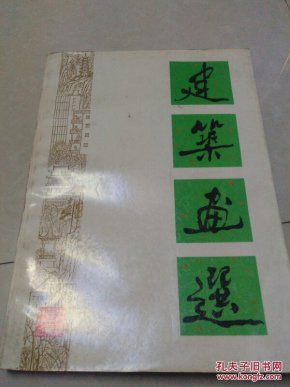 建
築
畫
選
孔夫子旧书网